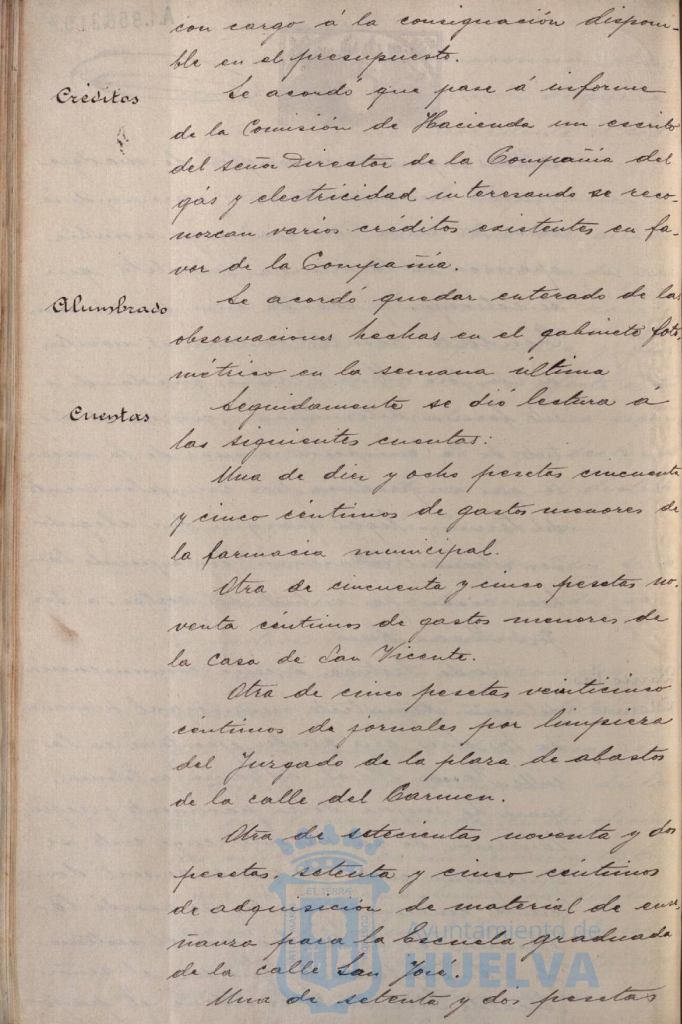 con cargo á la consignación disponi-
ble en el presupuesto.
Créditos
Se acordó que pase á informe
de la Comisión de Hacienda un escrito
del señor Director de la Compañía del
gás y electricidad interesando se reco-
nozcan varios créditos existentes en fa-
vor de la Compañía.
Alumbrado
Se acordó quedar enterado de las
observaciones hechas en el gabinete foto-
métrico en la semana última
Cuentas
Seguidamente se dió lectura á
las siguientes cuentas:
Una de diez y ocho pesetas cincuenta
y cinco céntimos de gastos menores de
la farmacia municipal.
Otra de cincuenta y cinco pesetas no-
venta céntimos de gastos menores de
la Casa de San Vicente.
Otra de cinco pesetas veinticinco
céntimos de jornales por limpieza
del Juzgado de la plaza de abastos
de la calle del Carmen.
Otra de setecientas noventa y dos
pesetas, setenta y cinco céntimos
de adquisición de material de ense-
ñanza para la Escuela graduada
de la calle San José.
Una de setenta y dos pesetas
Ayuntamiento de
HUELVA